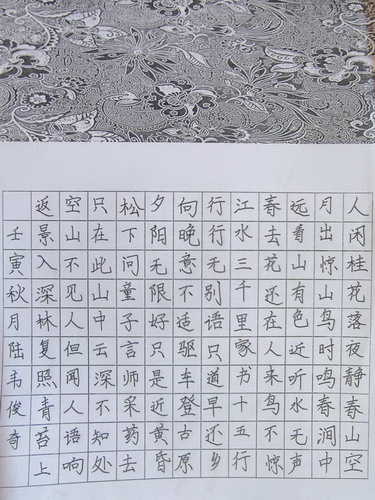 人闲桂花落夜静春山空
月出惊山鸟时鸣春涧中
远看山有色近听水无声
春去花还在人来鸟不惊
江水三千里家书十五行
行行无别语只道早还乡
向晚意不适驱车登古原
夕阳无限好只是近黄昏
松下问童子言师采药去
只在此山中云深不知处
空山不见人但闻人语响
返景入深林复照青苔上
壬寅秋月陆韦俊奇